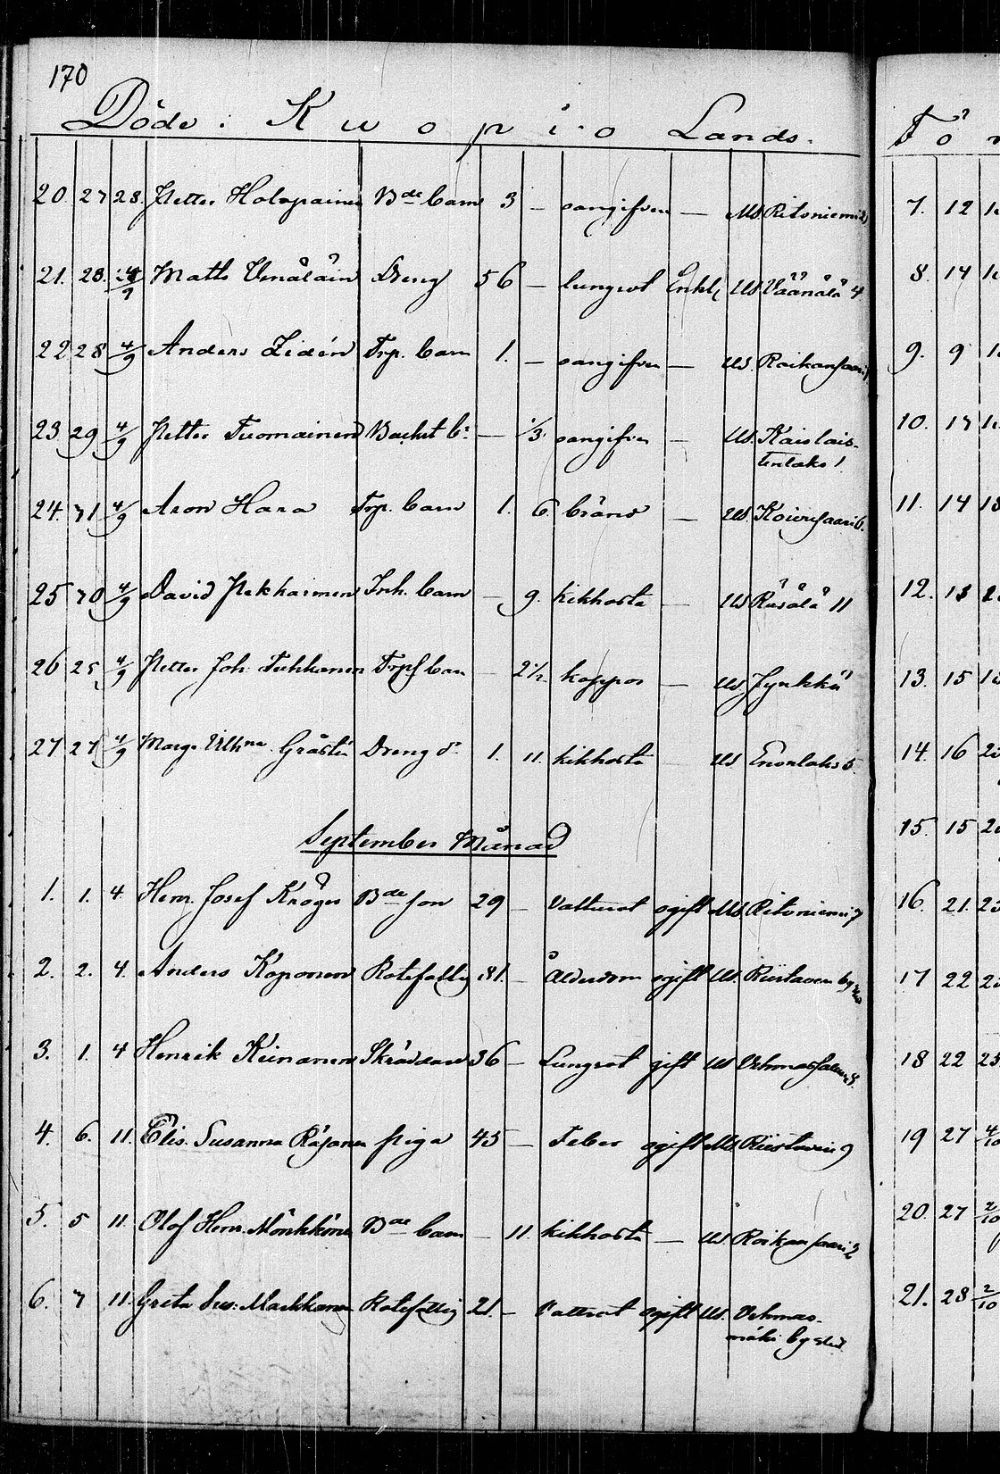 170
Döde i Kuopio Lands-
20. 27 28. Petter Holopainen Bde barn 3 — oangifven — Us. Ritoniemi 2
21. 28. 4/9 Matts Venäläin Dreng 56 — lungsot Enkl. Us. Väänälä 4
22 28 4/9 Anders Lidén Trp. barn 1. — oangifven — Us. Roikansaari 1
23 29 4/9 Petter Tuomainen Backst b. — 1/3. oangifven — Us. Kaislais-
tenlaks 1.
24. 31 4/9 Aron Hara Trp. barn 1. 6. bränd — Us. Koivusaari 6.
25 30 4/9 David Pekkarinen Inh. barn — 9. kikhosta — Us Räsälä 11
26 25 4/9 Petter Joh. Tuhkanen Trp. barn — 2 1/2 koppor — Us. Jynkkä
27 27 4/9 Marg. Vilhna Gråsten Dreng d. 1. 11. kikhosta — Us Enonlaks 5.
September Månad
1. 1. 4 Henr. Josef Kröger Bde son 29 — Vattusot ogift Us. Ritoniemi 7
2. 2. 4. Anders Koponen Rotefattig 81. — Ålderdom ogift Us. Riistaven by
3. 1. 4 Henrik Keinanen Skräddare 36 — Lungsot gift Us Vehmassalmi 8.
4. 6. 11. Elis. Susanna Räsänen piga 45 — Feber ogift Us Riistaven 9
5. 5 11. Olof Henr. Mönkkönen Bde barn — 11. kikhosta — Us. Roikansaari 2
6. 7 11. Greta Sus: Markkanen Rotefattig 21. — Vattsot ogift Us. Vehmas-
mäki by
Fö
7. 12
8. 14
9. 9
10. 17
11. 14 18
12. 13
13. 15
14. 16
15. 15
16. 21.
17 22
18 22 25
19 27 4/10
20. 27 2/10
21. 28 2/10